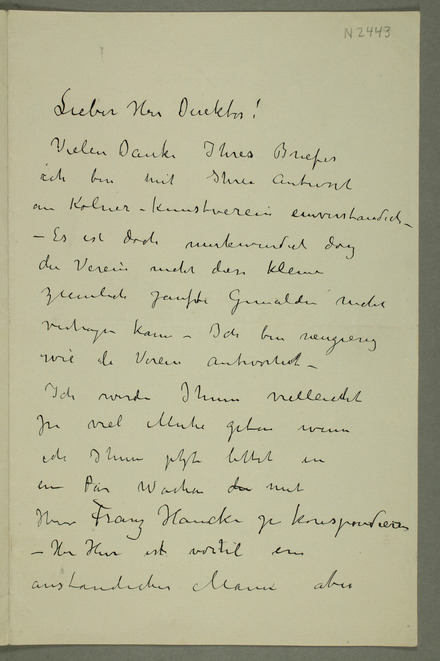 N2443
Lieber Herr Direktor!
Vielen Danke Ihres Briefes
ich bin mit Ihre Antwort
am Kolner-Kunstverein einverstandich –
– Es ist doch merkwurdich dass
der Verein nicht diese kleine
ziemlich sanfte Gemalden nicht
vertragen kann – Ich bin neugierig
wie de Verein antwortet –
Ich werde Ihnen vielleicht
zu viel Muhe geben wenn
ich Ihnen jetzt bittet in
ein Par Wochen mit
Herr Franz Hancke zu korespondieren
– Herr ist ein
anstandicher Mann aber